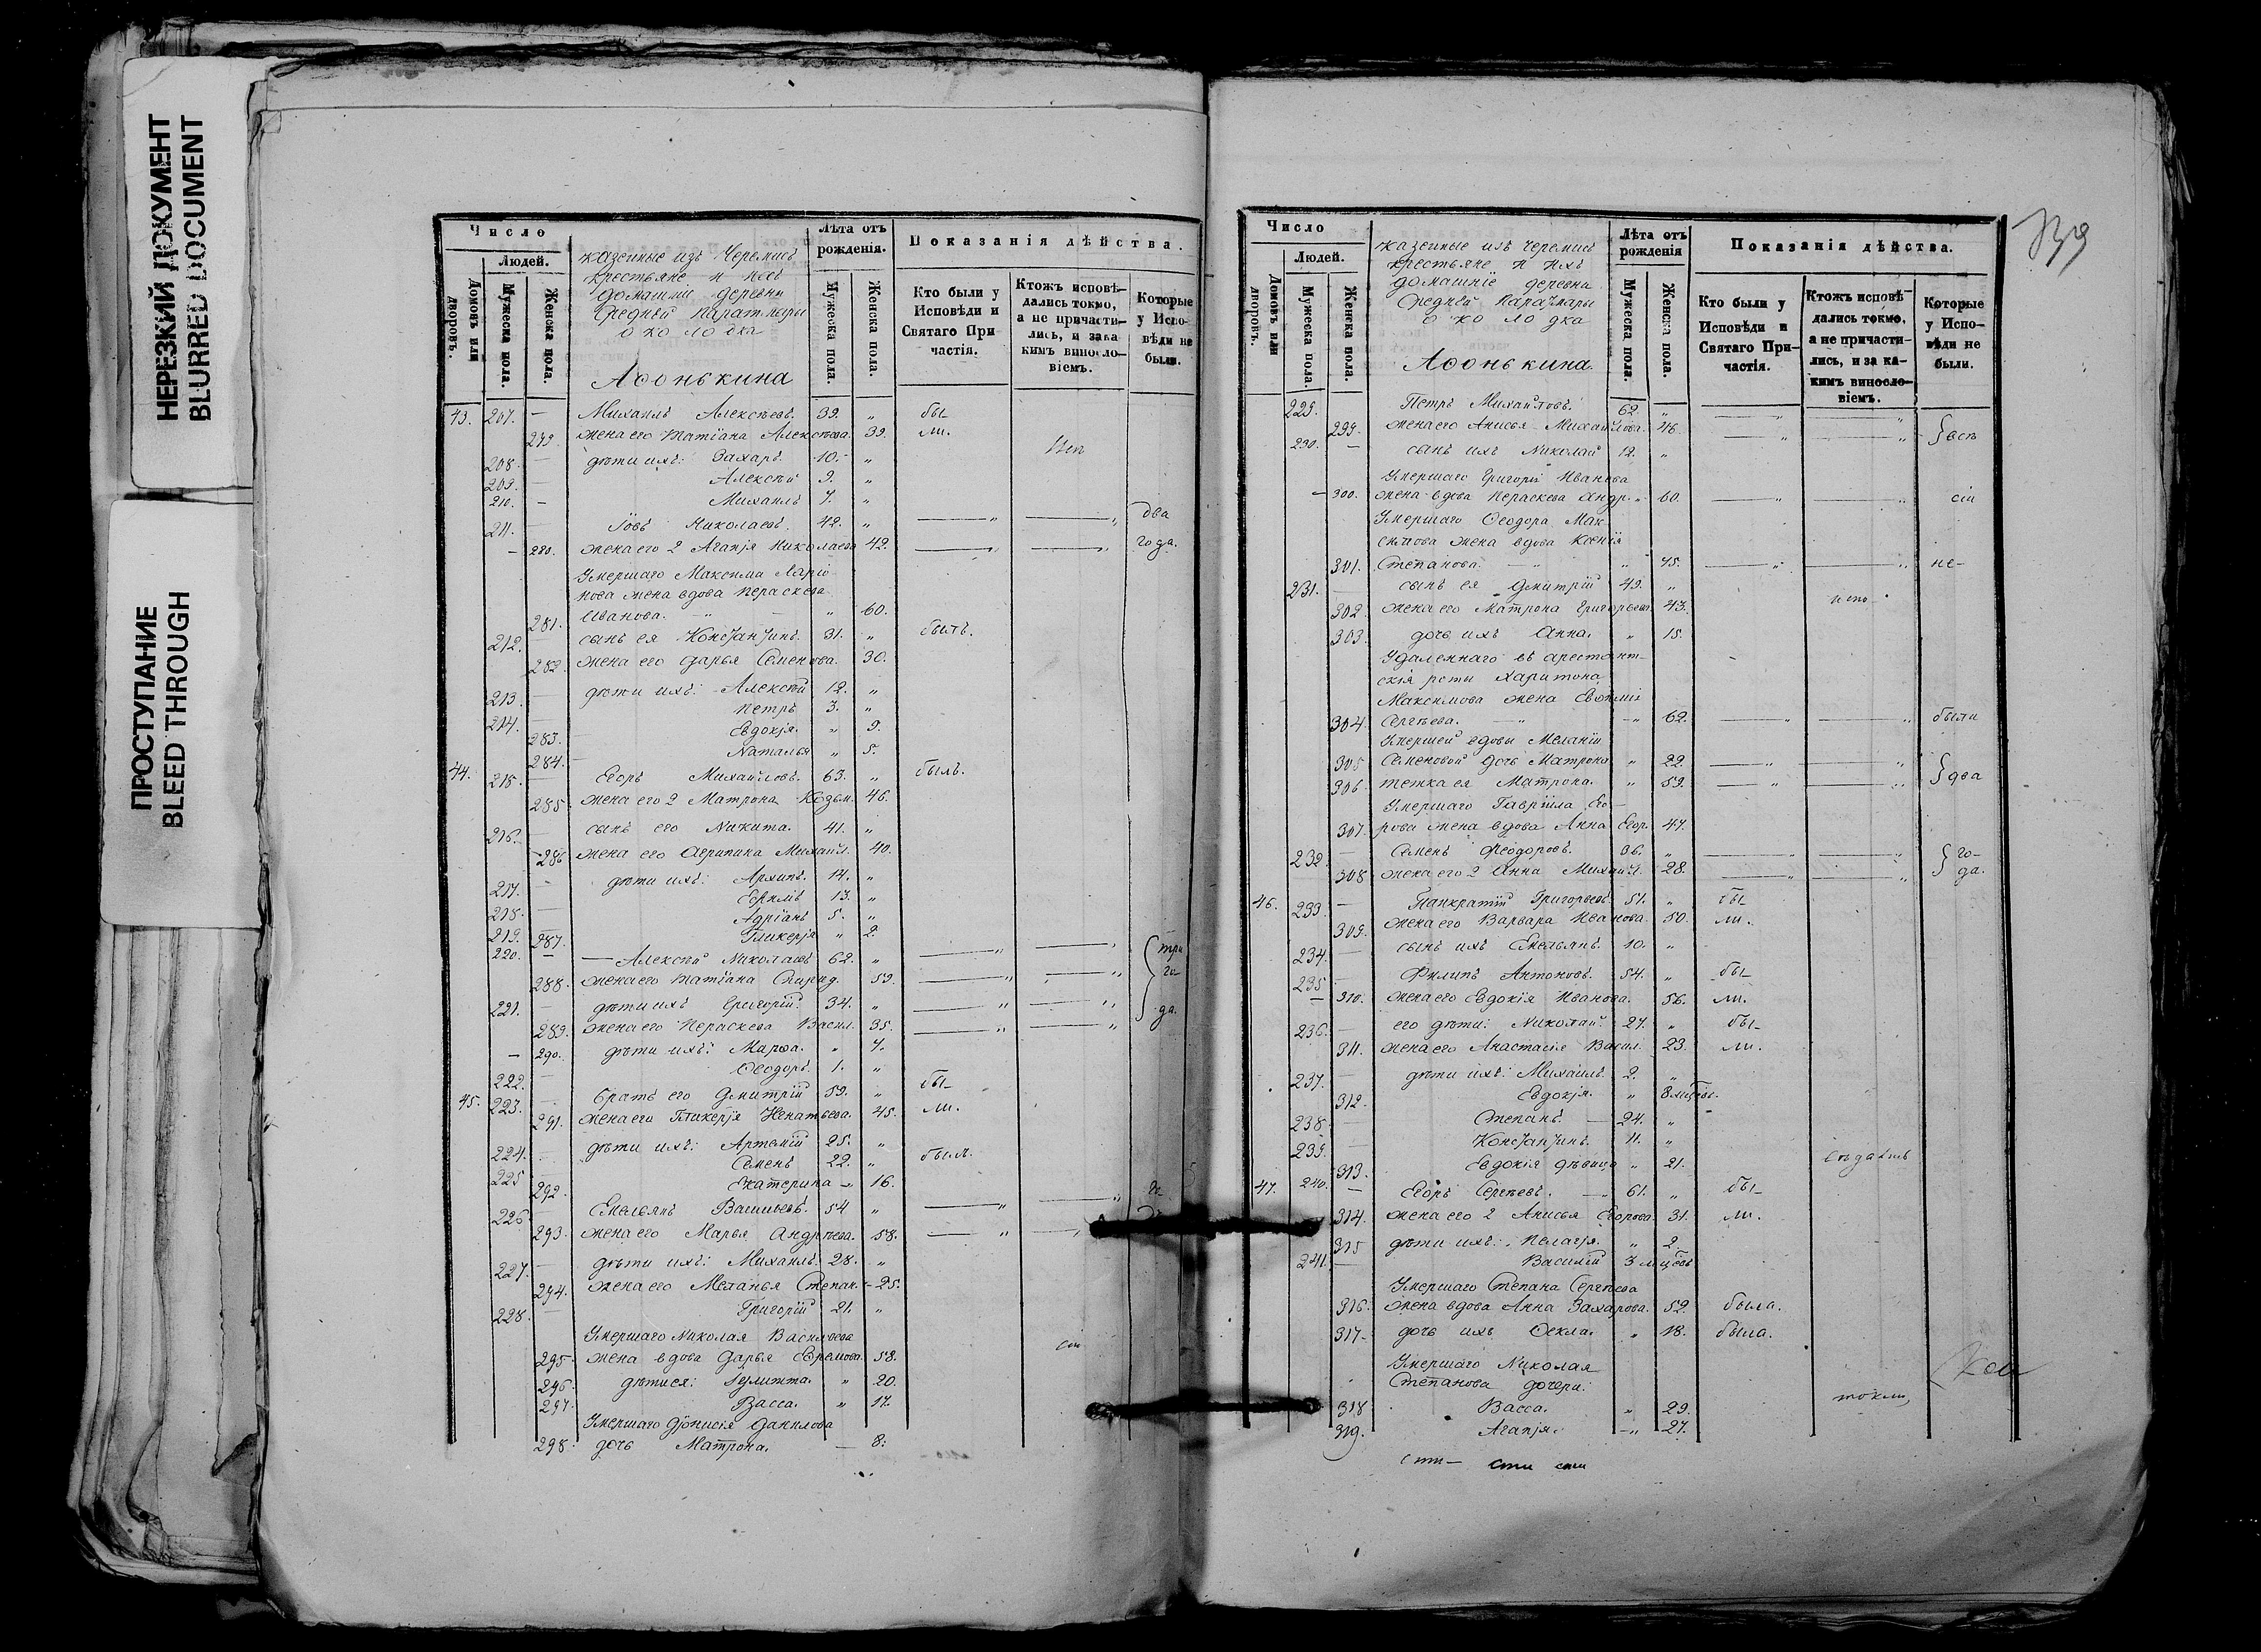 НЕРЕЗКИЙ ДОКУМЕНТ
BLURRED DOCUMENT
ПРОСТУПАНИЕ
BLEED THROUGH
Число
Людей.
Домовъ или дворовъ.
Мужеска пола.
Женска пола.
казенные изъ Черемисъ
крестьяне и ихъ
домашніе деревни
Средней
околодка
Аѳонькина
Лѣта отъ рожденія.
Мужеска пола.
Женска пола.
Показанія дѣйства.
Кто были у Исповѣди и Святаго При частія.
Ктожъ исповѣ-дались токмо, а не причасти-лись, и зака кимъ винословіемъ.
Которые у Испо-вѣди не были.
43. 207. — Михаилъ Алексѣевъ. 39. „ бы
279 жена его Татіана Алексѣева. 39. ли.
208. — дѣти ихъ: Захаръ. 10. „
209. — Алексѣй 9. „
210. — Михаилъ 7. „
211. — Іовъ Николаевъ. 42. „ два
— 280. жена его 2 Агапія Николаева 42. года.
Умершаго Максима Ларіо
нова жена вдова Параскева
281. Иванова. „ 60.
212. сынъ ея Константинъ. 31. „ былъ.
282. жена его Дарья Семенова. 30.
213. — дѣти ихъ: Алексѣй 12. „
214. — Петръ 3. „
283. Евдокія. „ 9.
284. Наталья „ 5.
44. 215. — Егоръ Михайловъ. 63. „ былъ.
285. жена его 2 Матрона Козьм. 46.
216. — сынъ его Никита. 41. „
286 жена его Агрипина Михайл. 40.
217. — дѣти ихъ: Архипъ. 14. „
218. — Ефимъ 13. „
219. Адріанъ 5. „
287. Гликерія „ 2.
220. — Алексѣй Николаевъ 62. „ три
288. жена его Татіана Спирид. 59. го
221. дѣти ихъ Григорій. 34. „ да.
289. жена его Параскева Васил. 35.
— 290. дѣти ихъ: Марѳа. „ 7.
222. Ѳеодоръ. 1. „
45. 223. — братъ его Дмитрій 59. „ бы-
291. жена его Гликерія Игнатьева. 45. ли.
224. — дѣти ихъ: Артемій 25. „
225 Семенъ 22. „ были.
292. Екатерина „ 16.
226 — Емельянъ Васильевъ. 54 „ го
293. жена его Марья Андреева. 58.
227. — дѣти ихъ: Михаилъ. 28. „
294. жена его Меланья Степан. 25.
228. — Григорій 21. „
Умершаго Николая Васильева
295. жена вдова Дарья Ефремова. 58.
296. дѣти ея: Іулитта. „ 20.
297. Васса. „ 17.
Умершаго Діонисія Данилова
298. дочь Матрона. — 8.
Число
Людей.
Домовъ или дворовъ.
Мужеска пола.
Женска пола.
казенные изъ Черемисъ
крестьяне и ихъ
домашніе деревни
Средней
околодка
Аѳонькина.
Лѣта отъ рожденія
Мужеска пола.
Женска пола.
Показанія дѣйства.
Кто были у Исповѣди и Святаго При-частія.
Ктожъ исповѣ-дались токмо, а не причасти-лись, и за ка-кимъ винословіемъ.
Которые у Испо-вѣди не были.
229. Петръ Михайловъ. 62. „
299. жена его Анисья Михайлова. 46. всѣ
230. — сынъ ихъ Николай 12. „
Умершаго Григорія Иванова
— 300. жена вдова Параскева Андр. „ 60. сіи
Умершаго Ѳеодора Мак
симова жена вдова Ксенія
301. Степанова. „ 75. не-
231. — сынъ ея Дмитрій 49. „
302 жена его Матрона Григорьева. 43. испо-
303. дочь ихъ Анна. „ 15.
Удаленнаго въ арестант-
скія роты Харитона
Максимова жена Евфимія
304 Сергѣева. „ 62. были
Умершей вдовы Меланіи
305 Семеновой дочь Матрона „ 22.
306 тетка ея Матрона. „ 59. два
Умершаго Гавріила Его-
307. рова жена вдова Анна Егор. 47.
232. — Семенъ Ѳеодоровъ. 36. „ го-
308 жена его 2 Анна Михайл. 28. да.
46. 233. — Панкратій Григорьевъ. 51. „ бы
309. жена его Варвара Иванова. 50. ли.
234. — сынъ ихъ Емельянъ. 10. „
235 — Филипъ Антоновъ. 54. „ бы-
— 310. жена его Евдокія Иванова. 56. ли.
236. — его дѣти: Николай. 27. „ бы-
311. жена его Анастасія Васил. 23. ли.
237. — дѣти ихъ: Михаилъ. 2. „
312. Евдокія. „ 8 мцовъ.
238 — Степанъ. 24. „
239. — Константинъ. 11. „
313. Евдокія дѣвица „ 21.
47. 240. — Егоръ Сергѣевъ. 61. „ бы-
314. жена его 2 Анисья Егорова. 31. ли.
315 дѣти ихъ: Пелагія. „ 2.
241. — Василій 3 мцовъ
Умершаго Степана Сергѣева
316. жена вдова Анна Захарова. 52. была.
317. дочь ихъ Ѳекла. „ 18. была.
Умершаго Николая
Степанова дочери:
318 Васса. „ 29.
319. Агапія. „ 27.